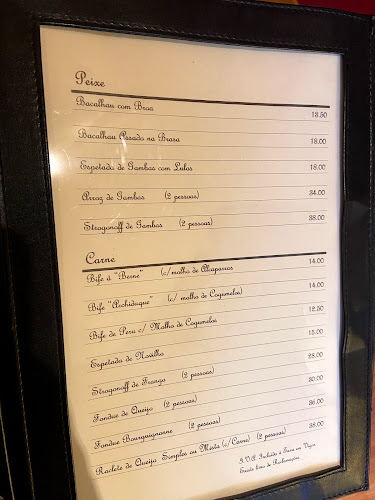 Peixe
Bacalhau com Broa 13.50
Bacalhau Assado na Brasa 18.00
Espetada de Gambas com Lulas 18.00
Arroz de Gambas (2 pessoas) 34.00
Strogonoff de Gambas (2 pessoas) 38.00
Carne
Bife à "Berne" (c/ molho de Alcaparras 14.00
Bife "Archiduque" (c/ molho de Cogumelos) 14.00
Bife de Peru c/ Molho de Cogumelos 12.50
Espetada de Novilho 15.00
Strogonoff de Frango (2 pessoas) 28.00
Fondue de Queijo (2 pessoas) 30.00
Fondue Bourguignonne (2 pessoas) 36.00
Raclete de Queijo Simples ou Mista (c/Carne) (2 pessoas) 38.00
I.V.A. Incluido à Taxa em Vigor
Existe livro de Reclamações